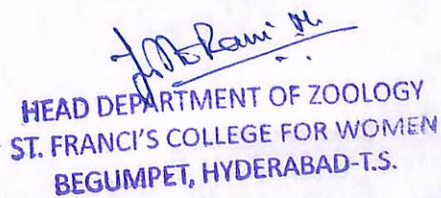 Rani M.
HEAD DEPARTMENT OF ZOOLOGY
ST. FRANCI'S COLLEGE FOR WOMEN
BEGUMPET, HYDERABAD-T.S.